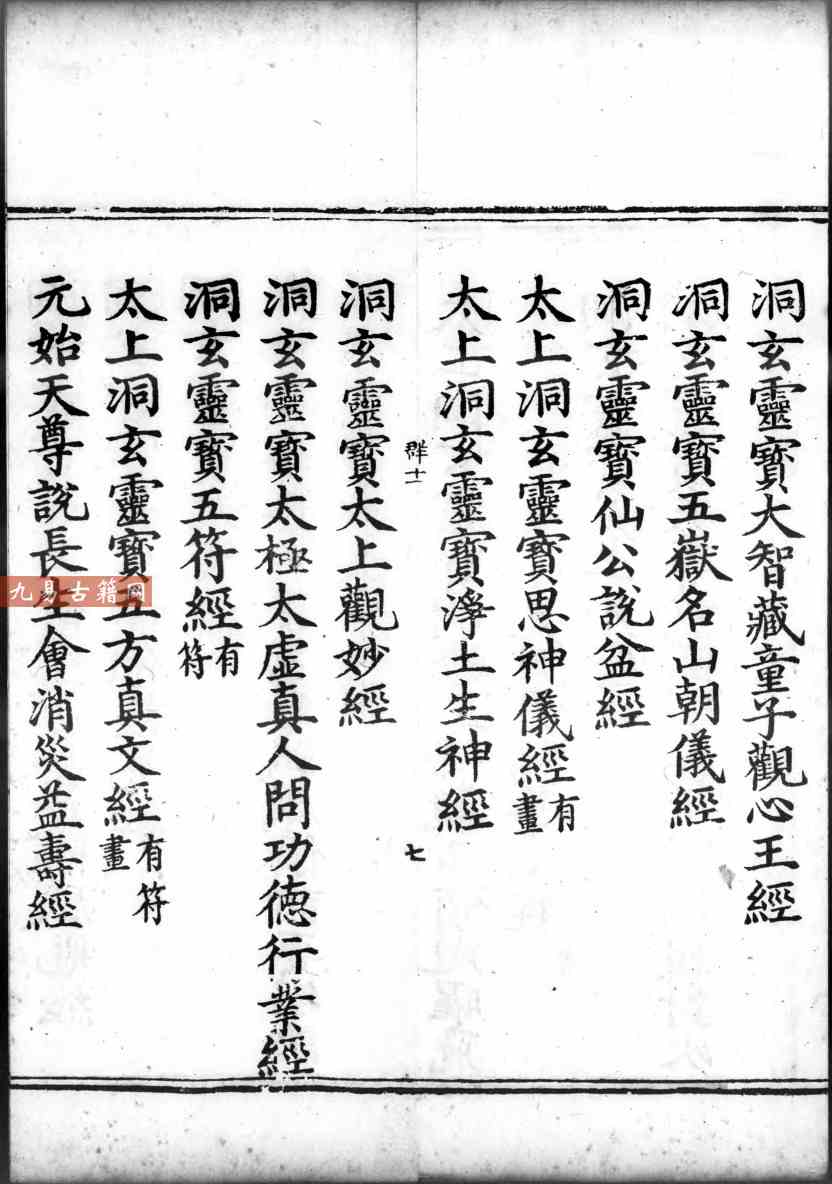 洞玄靈寶大智藏童子觀心王經
洞玄靈寶五嶽名山朝儀經
洞玄靈寶仙公說盆經
太上洞玄靈寶思神儀經有畫
太上洞玄靈寶淨土生神經
群十一
七
洞玄靈寶太上觀妙經
洞玄靈寶太極太虛真人問功德行業經
洞玄靈寶五符經有符
太上洞玄靈寶五方真文經有符畫
元始天尊說長生會消災益壽經
九易古籍网